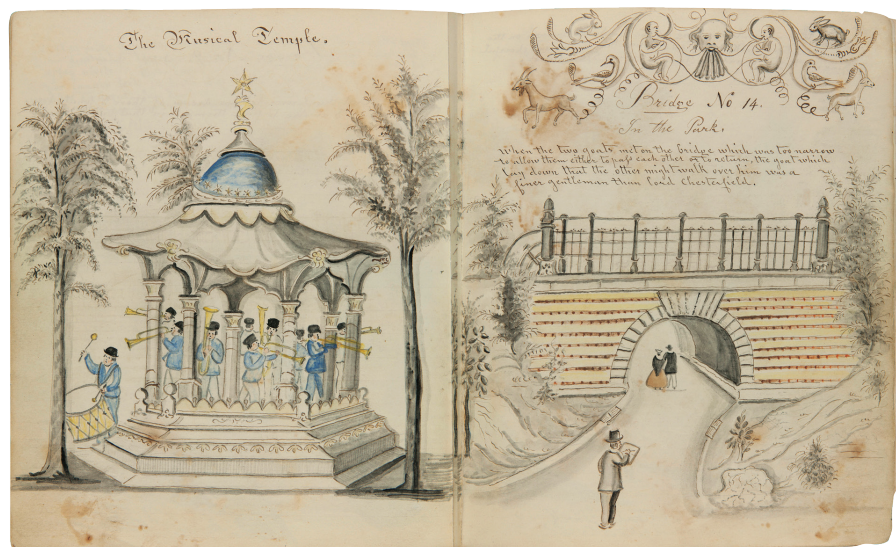 The Musical Temple.
Bridge No 14.
In the Park.
When the two goats met on the bridge which was too narrow
to allow them either to pass each other or to return, the goat which
lay down that the other might walk over him was a
finer gentleman than Lord Chesterfield.